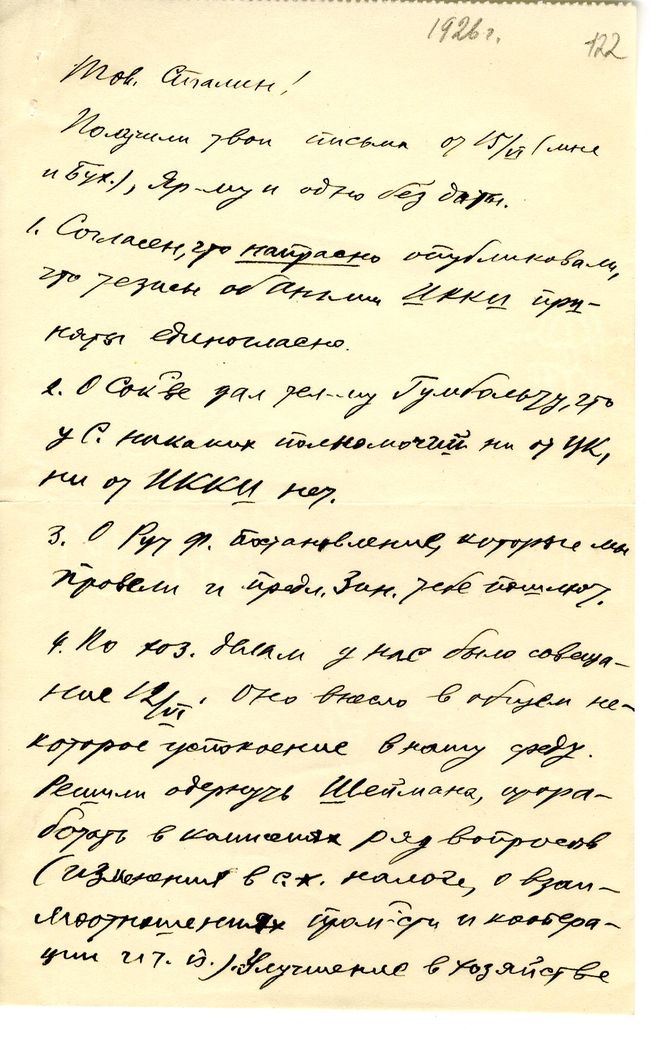 1926 г.
122
Тов. Сталин!
Получили твои письма от 15/VI (мне
и Бух.), Яр-му и одно без даты.
1. Согласен, что напрасно опубликовали,
что тезисы об Англии ИККИ при-
няты единогласно.
2. О Сок-ве дал тел-му Гумбольту, что
у С. никаких полномочий ни от ЦК,
ни от ИККИ нет.
3. О Рут Ф. постановление, которые мы
провели и предл. Зин. тебе пошлют.
4. По хоз. делам у нас было совеща-
ние 12/VI. Оно внесло в общем не-
которое успокоение в нашу среду.
Решили одернуть Шеймана, прора-
ботать в комиссиях ряд вопросов
(изменения в с.х. налоге, о взаи-
моотношениях пром-сти и коопера-
ции и т. п.). Улучшение в хозяйстве